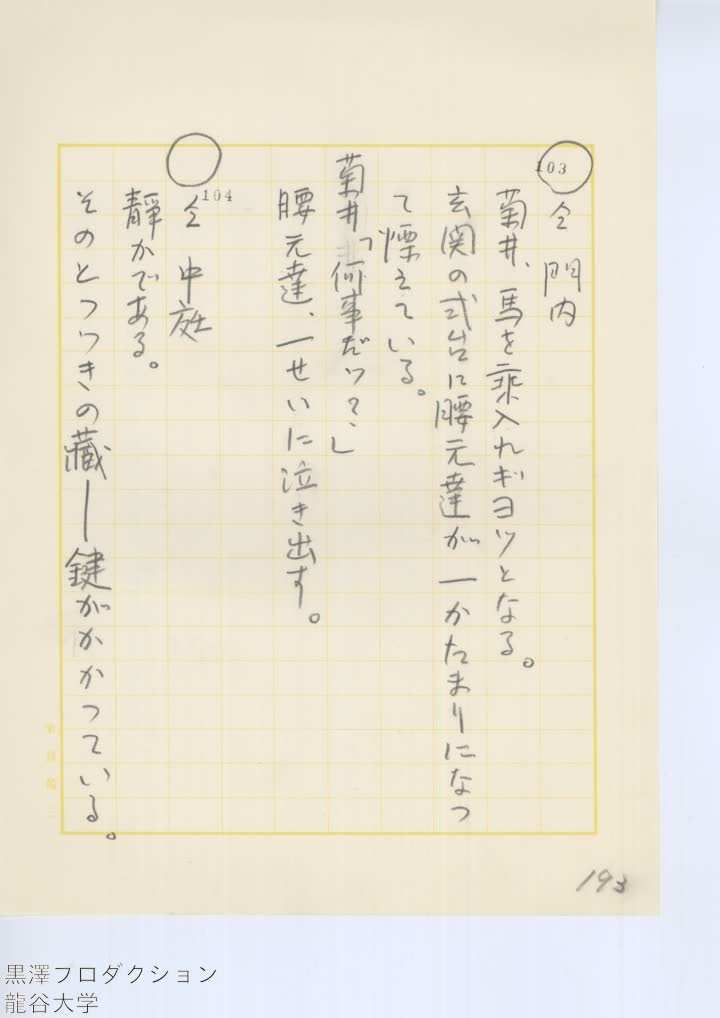 103
仝 門内
菊井、馬を乘入れギヨツとなる。
玄関の式台に腰元達が一かたまりになつ
て慄えている。
菊井「何事だッ?」
腰元達、一せいに泣き出す。
104
仝 中庭
靜かである。
そのとつつきの藏―鍵がかかつている。
193
黒澤プロダクション
龍谷大学